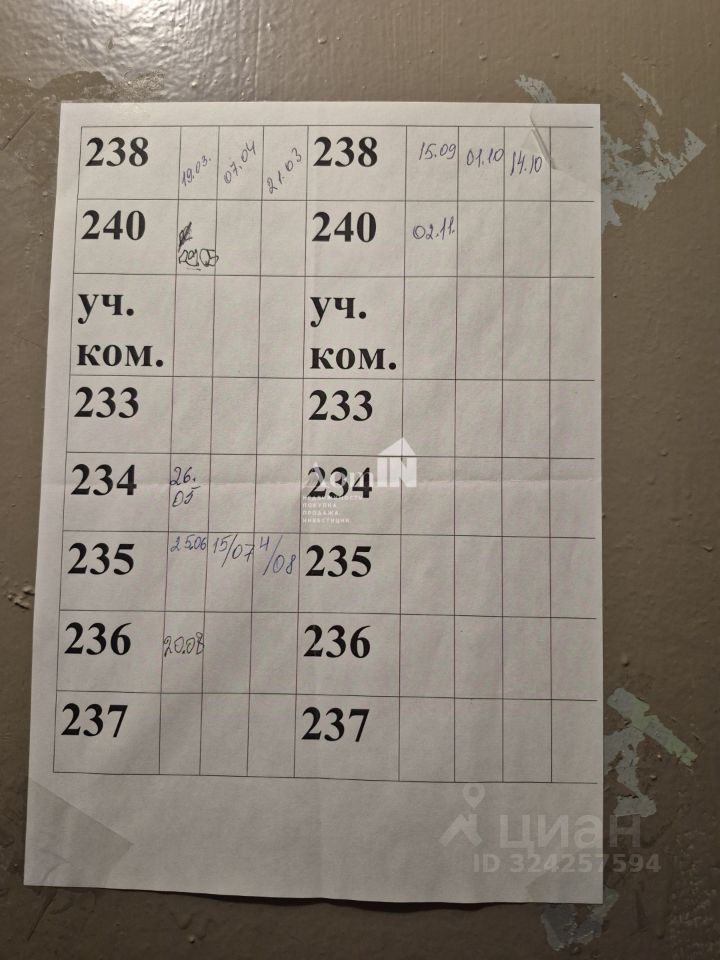 238 19.03. 07.04 21.03 238 15.09 01.10 14.10
240 240 02.11.
уч. уч.
ком. ком.
233 233
234 26. 05 234
235 25.06 15/07 4/08 235
236 20.08 236
237 237
ДомIN
НЕДВИЖИМОСТЬ
ПОКУПКА
ПРОДАЖА
ИНВЕСТИЦИИ
циан
ID 324257594